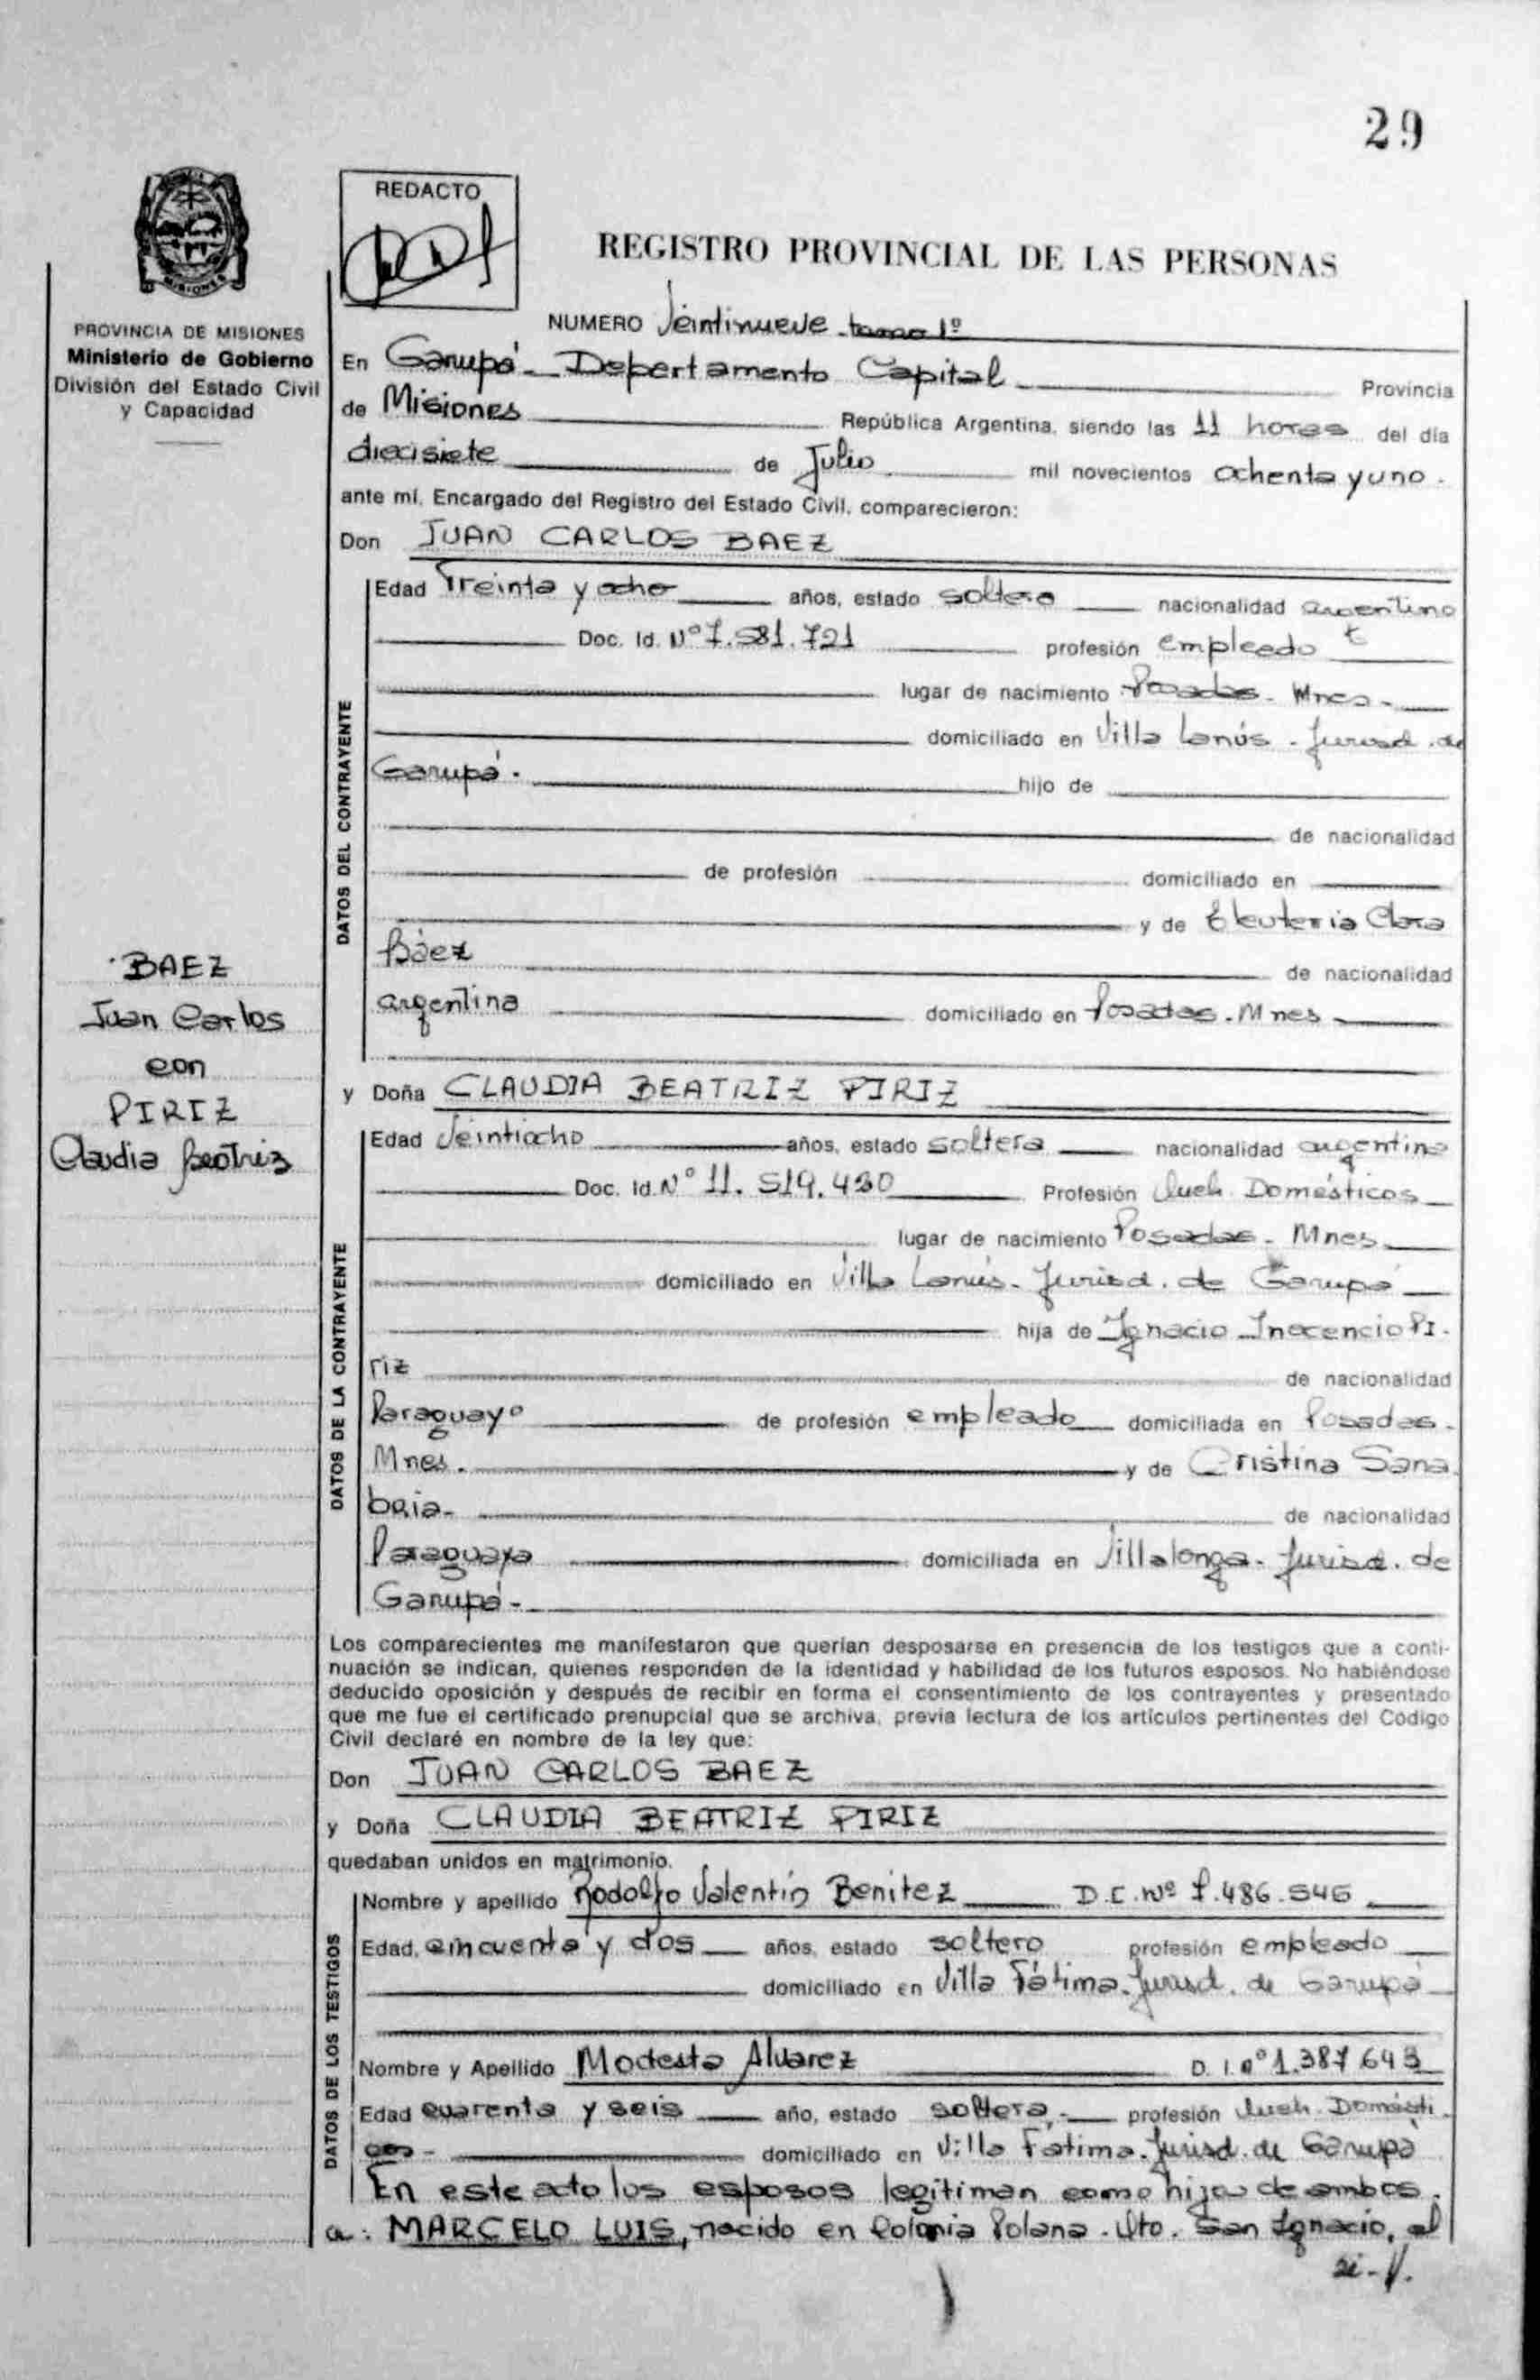 29
REDACTO
REGISTRO PROVINCIAL DE LAS PERSONAS
PROVINCIA DE MISIONES
Ministerio de Gobierno
División del Estado Civil
y Capacidad
NUMERO Veintinueve tomo 1º
En Garupá - Departamento Capital Provincia
de Misiones República Argentina, siendo las 11 horas del día
diecisiete de Julio mil novecientos ochenta y uno.
ante mí, Encargado del Registro del Estado Civil, comparecieron:
Don JUAN CARLOS BAEZ
DATOS DEL CONTRAYENTE
Edad Treinta y ocho años, estado soltero nacionalidad argentino
Doc. Id. Nº 7.581.721 profesión empleado
lugar de nacimiento Posadas - Mnes -
domiciliado en Villa Lanús - Jurisd. de
Garupá. hijo de
de nacionalidad
de profesión domiciliado en
y de Eleuteria Clara
Báez de nacionalidad
argentina domiciliado en Posadas. Mnes
BAEZ
Juan Carlos
con
PIRIZ
Claudia Beatriz
y Doña CLAUDIA BEATRIZ PIRIZ
DATOS DE LA CONTRAYENTE
Edad Veintiocho años, estado soltera nacionalidad argentina
Doc. Id. Nº 11.519.430 Profesión Queh. Domésticos
lugar de nacimiento Posadas - Mnes.
domiciliado en Villa Lanús - Jurisd. de Garupá
hija de Ignacio Inocencio Pi-
riz de nacionalidad
Paraguayo de profesión empleado domiciliada en Posadas.
Mnes. y de Cristina Sana
bria- de nacionalidad
Paraguaya domiciliada en Villalonga - Jurisd. de
Garupá -
Los comparecientes me manifestaron que querían desposarse en presencia de los testigos que a conti-
nuación se indican, quienes responden de la identidad y habilidad de los futuros esposos. No habiéndose
deducido oposición y después de recibir en forma el consentimiento de los contrayentes y presentado
que me fue el certificado prenupcial que se archiva, previa lectura de los artículos pertinentes del Código
Civil declaré en nombre de la ley que:
Don JUAN CARLOS BAEZ
y Doña CLAUDIA BEATRIZ PIRIZ
quedaban unidos en matrimonio.
DATOS DE LOS TESTIGOS
Nombre y apellido Rodolfo Valentín Benitez D.I. Nº 7.486.546
Edad, cincuenta y dos años, estado soltero profesión empleado
domiciliado en Villa Fátima. Jurisd. de Garupá
Nombre y Apellido Modesta Alvarez D. I. nº 1.387.643
Edad cuarenta y seis año, estado soltera, profesión Queh. Domésti
cos- domiciliado en Villa Fátima. Jurisd. de Garupá
En este acto los esposos legitiman como hijos de ambos.
a: MARCELO LUIS, nacido en Colonia Polana. Dto. San Ignacio, el